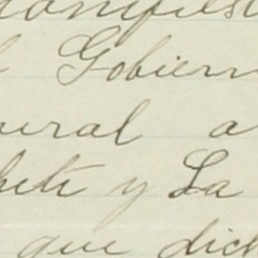 manifiest
l Gobiern
neral a
heti y La
que dich